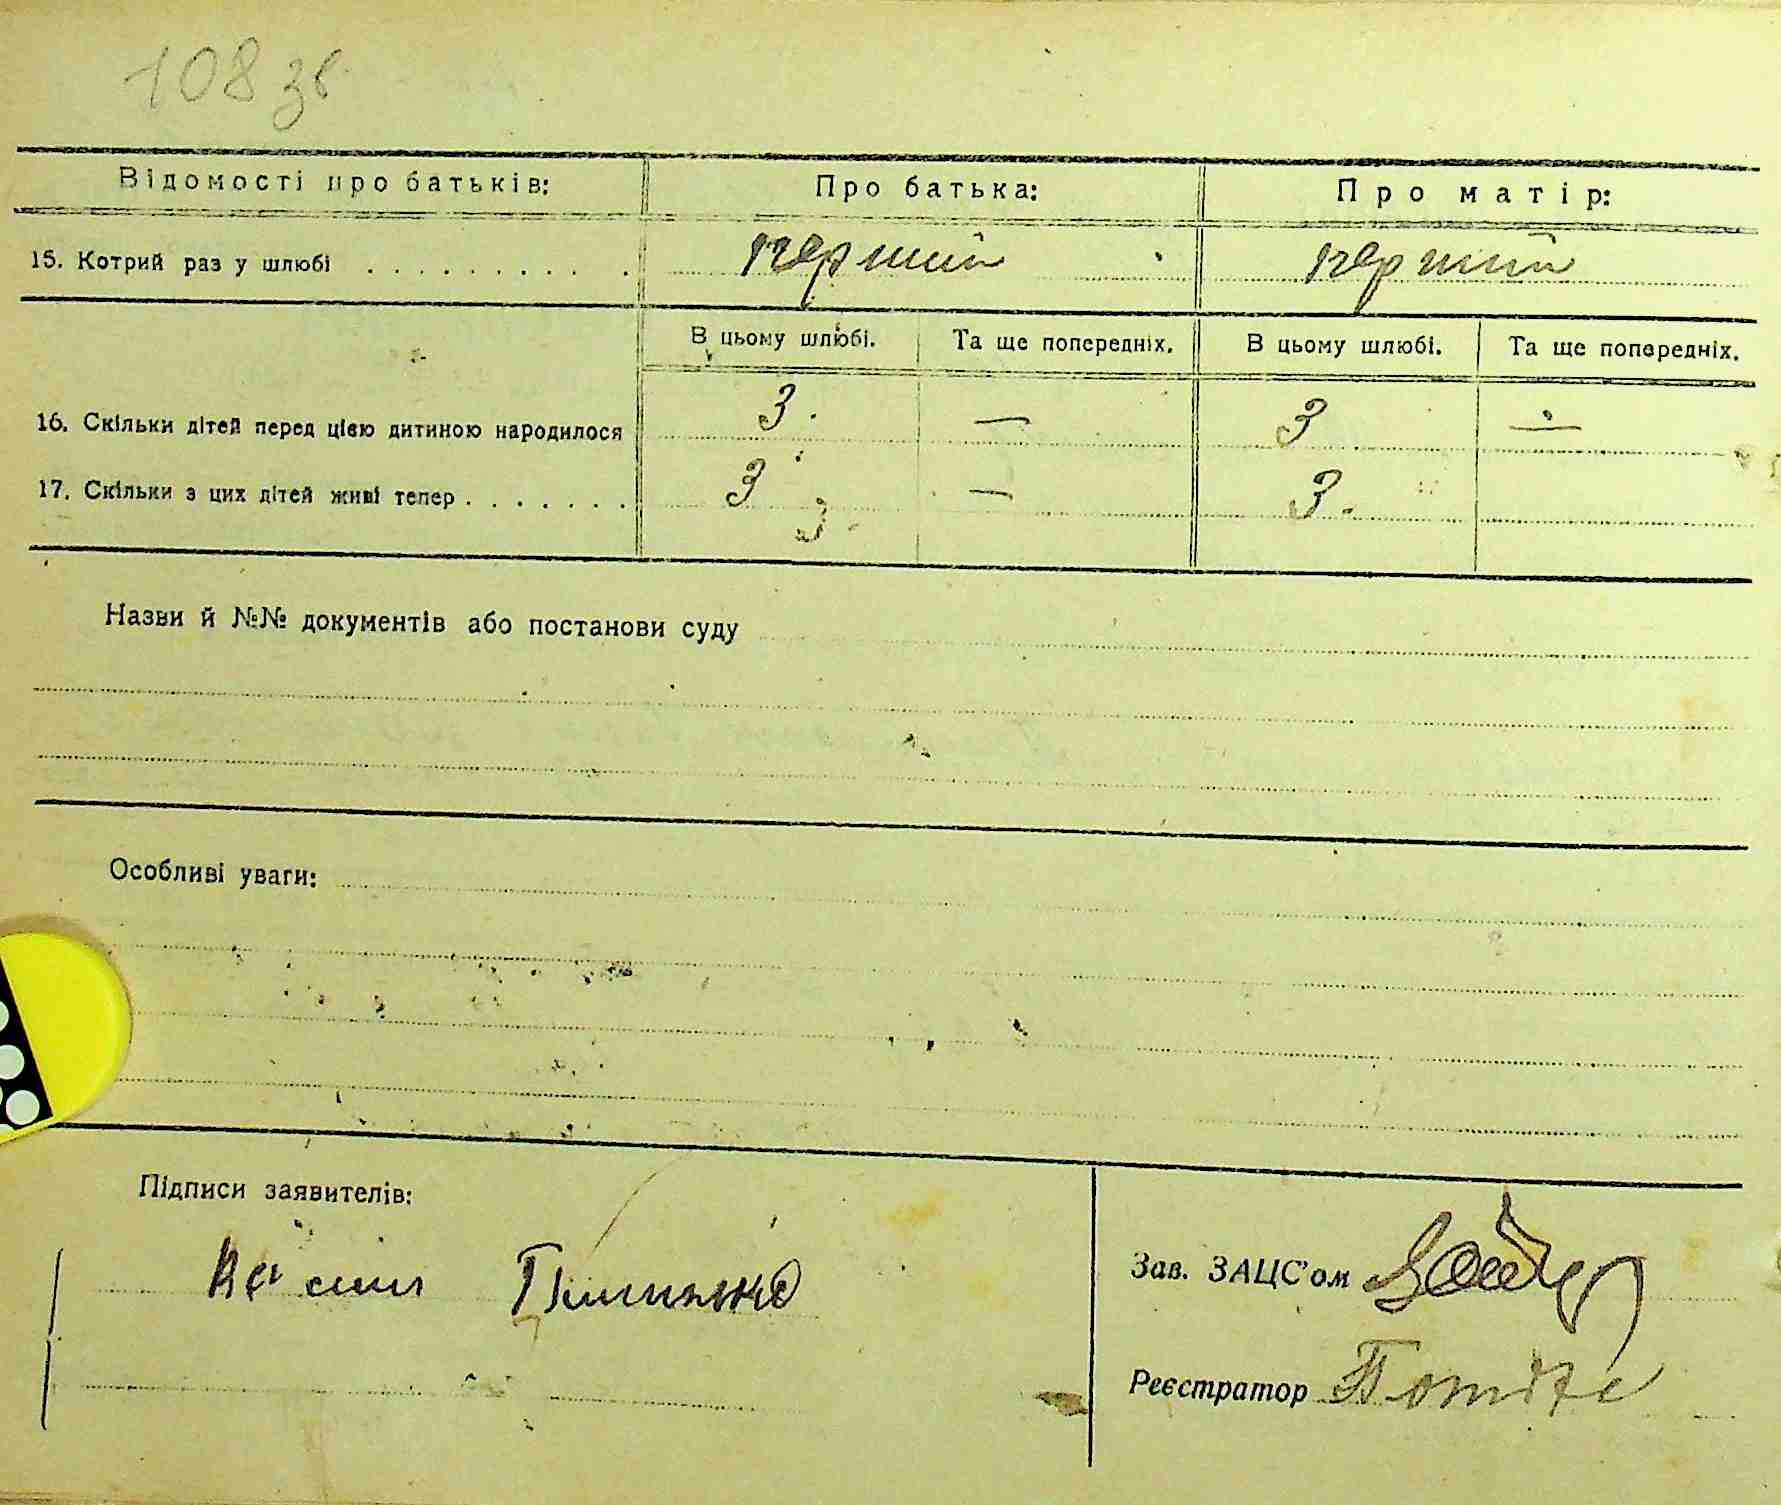 108 зв
Відомості про батьків: Про батька: Про матір:
15. Котрий раз у шлюбі . . . . . . . . . . перший перший
В цьому шлюбі. Та ще попередніх. В цьому шлюбі. Та ще попередніх.
16. Скільки дітей перед цією дитиною народилося 3. — 3 —
17. Скільки з цих дітей живі тепер . . . . . . . 3 — 3.
3.
Назви й №№ документів або постанови суду
Особливі уваги:
Підписи заявителів:
Зав. ЗАЦС'ом
Реєстратор